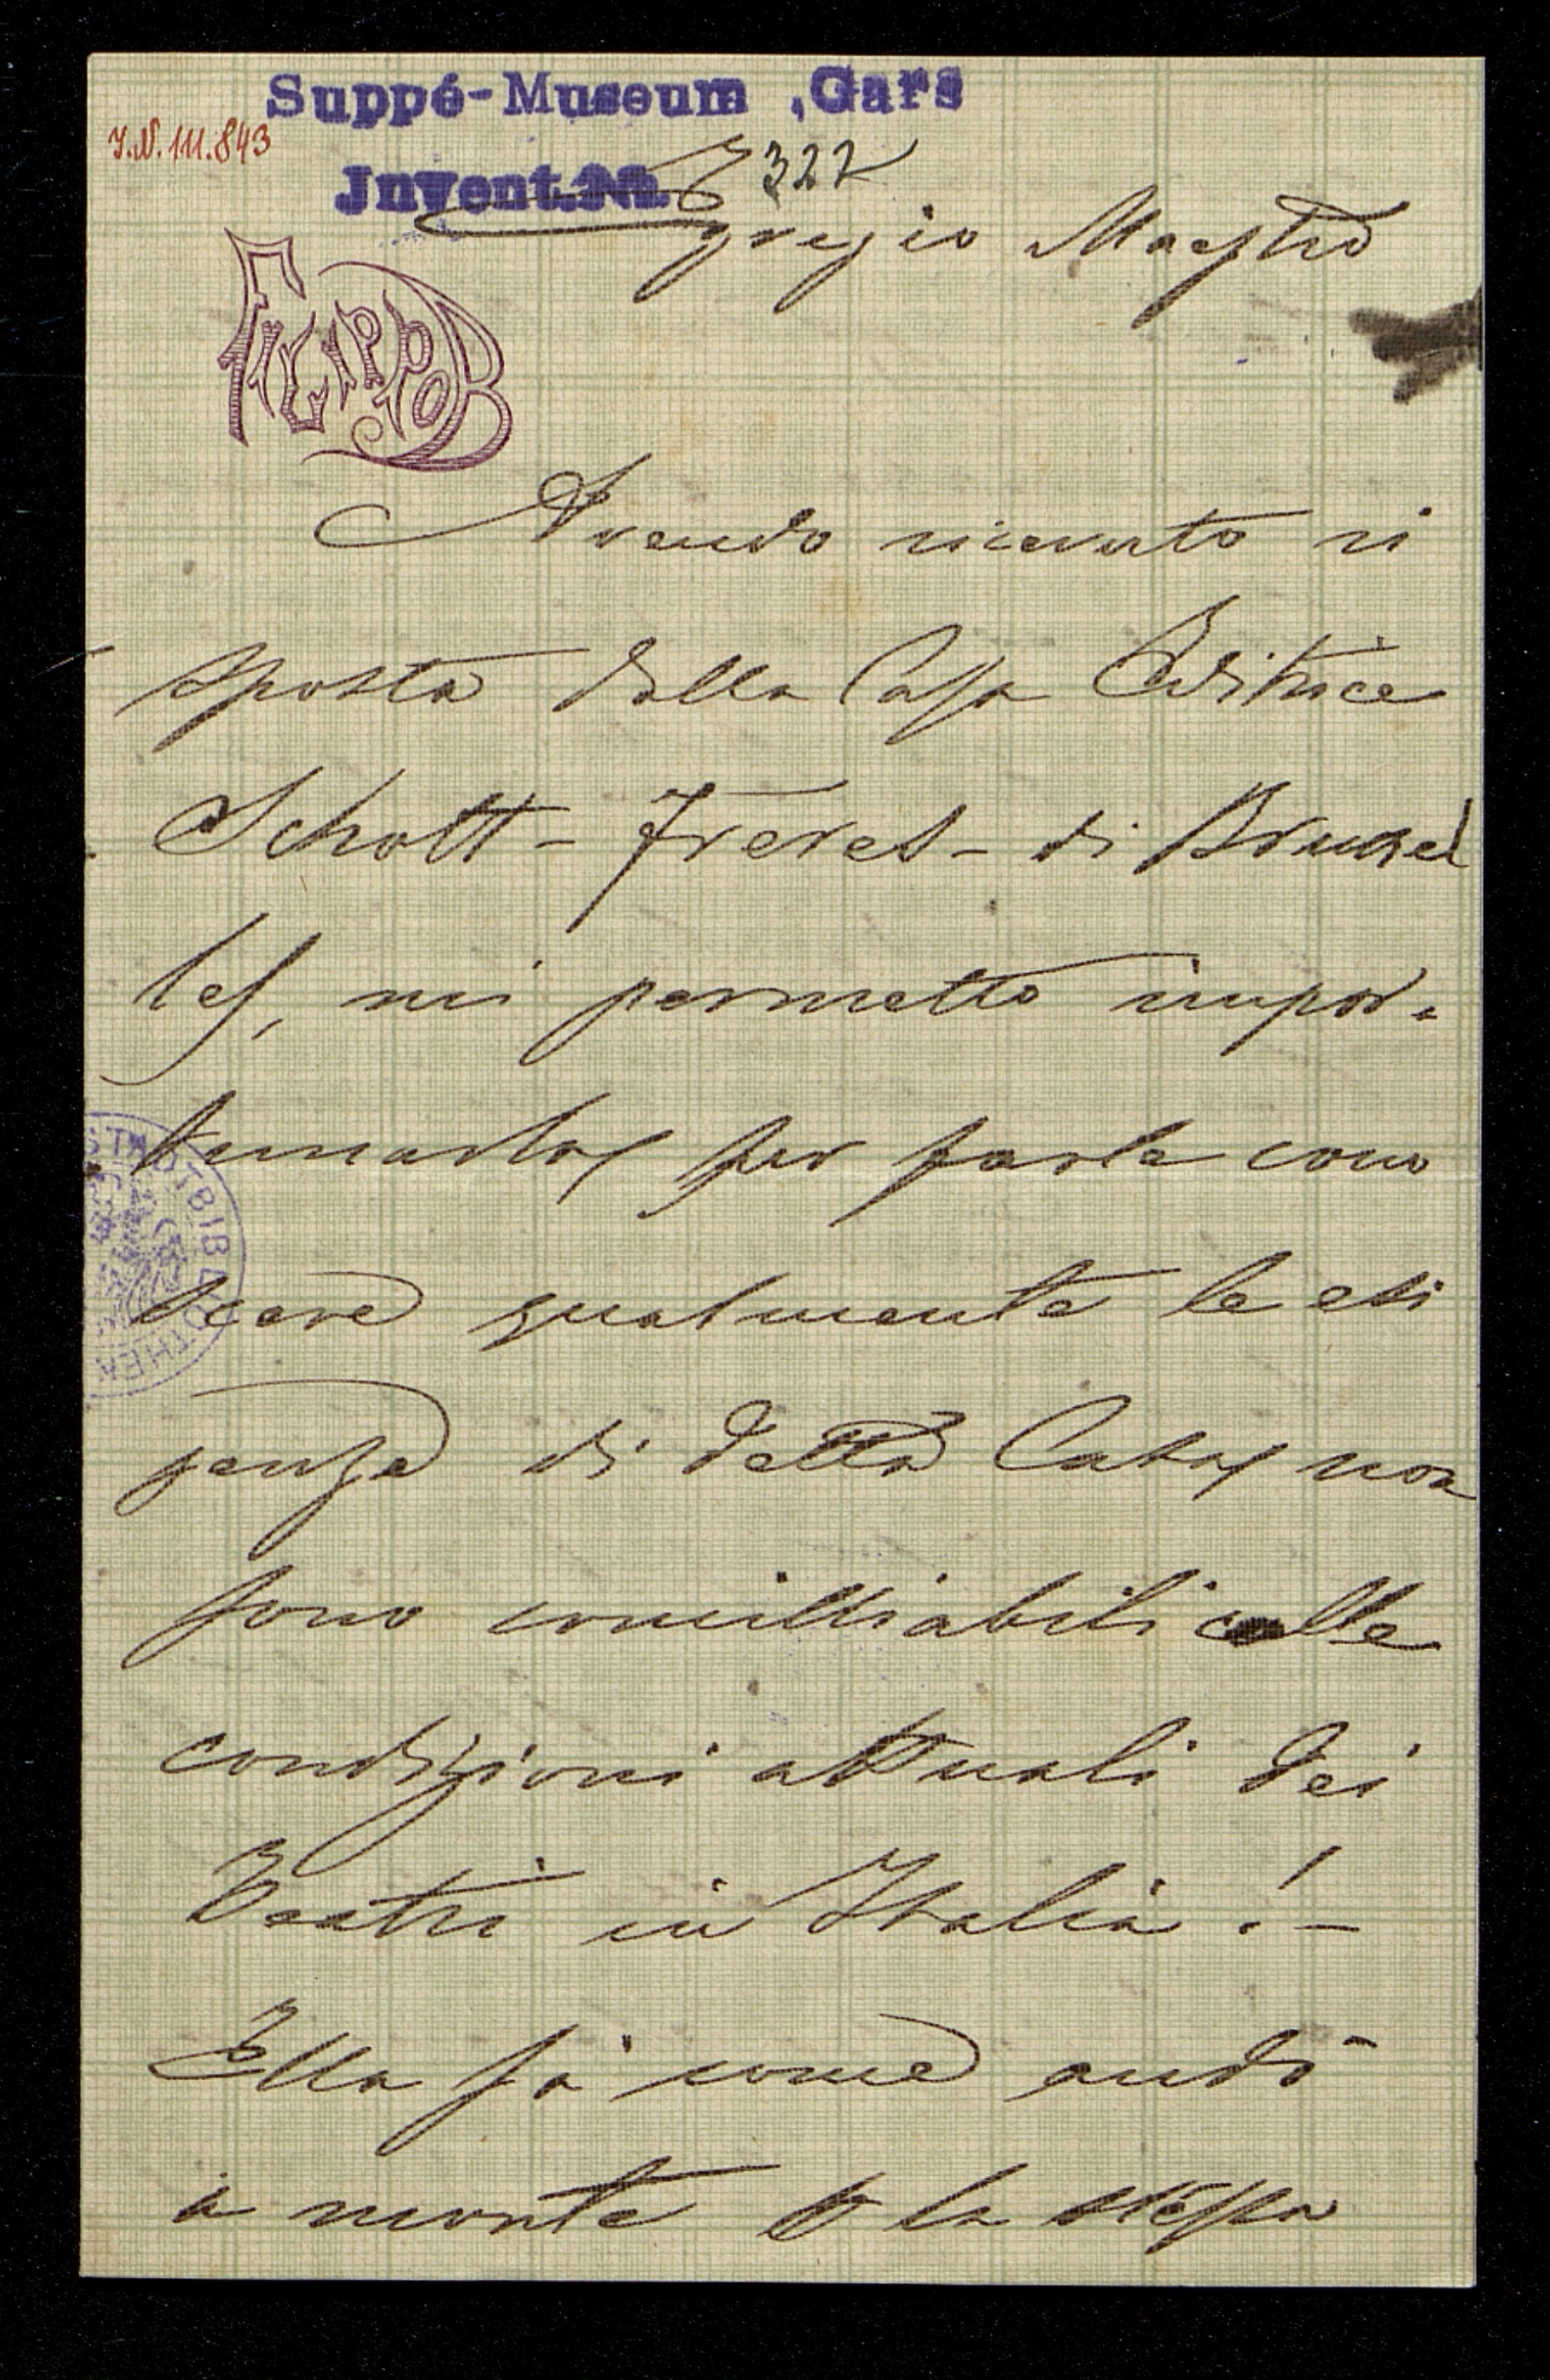 Suppé-Museum, Gars
I.N. 111.843
Invent. 322
Egregio Maestro
FILIPPO B
Avendo ricevuto ri
sposta dalla Casa Editrice
Schott - Freres - di Bruxel
les, mi permetto impor-
tunarla per farle cono
scere qualmente le esi
genze di detta Casa non
sono conciliabili colle
condizioni attuali dei
Teatri in Italia! -
Ella sà come andò
a monte la stessa
STADTBIBLIOTHEK